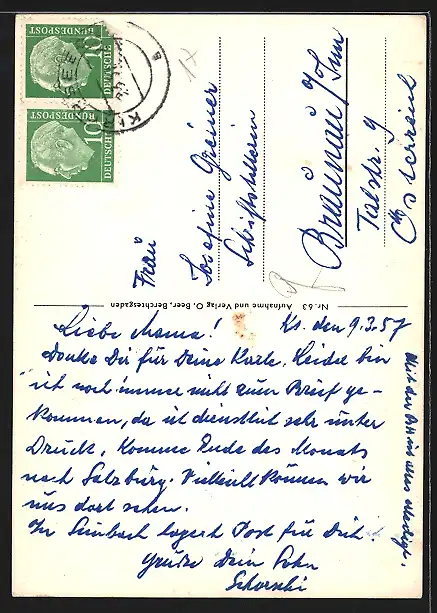 Ks. den 9.3.57
Liebe Mama!
Danke Dir für Deine Karte. Leider bin
ich noch immer nicht zum Brief ge-
kommen, da ich dienstlich sehr unter
Druck. Komme Ende des Monats
nach Salzburg. Vielleicht können wir
uns dort sehen.
In Simbach lagert Post für Dich!
Grüße Dein Sohn
Mit der
Nr. 63 Aufnahme und Verlag O. Beer, Berchtesgaden
Frau
Josefine Greiner
Schriftstellerin
Braunau/Inn
Talstr. 9
Österreich
DEUTSCHE BUNDESPOST 10
DEUTSCHE BUNDESPOST 10